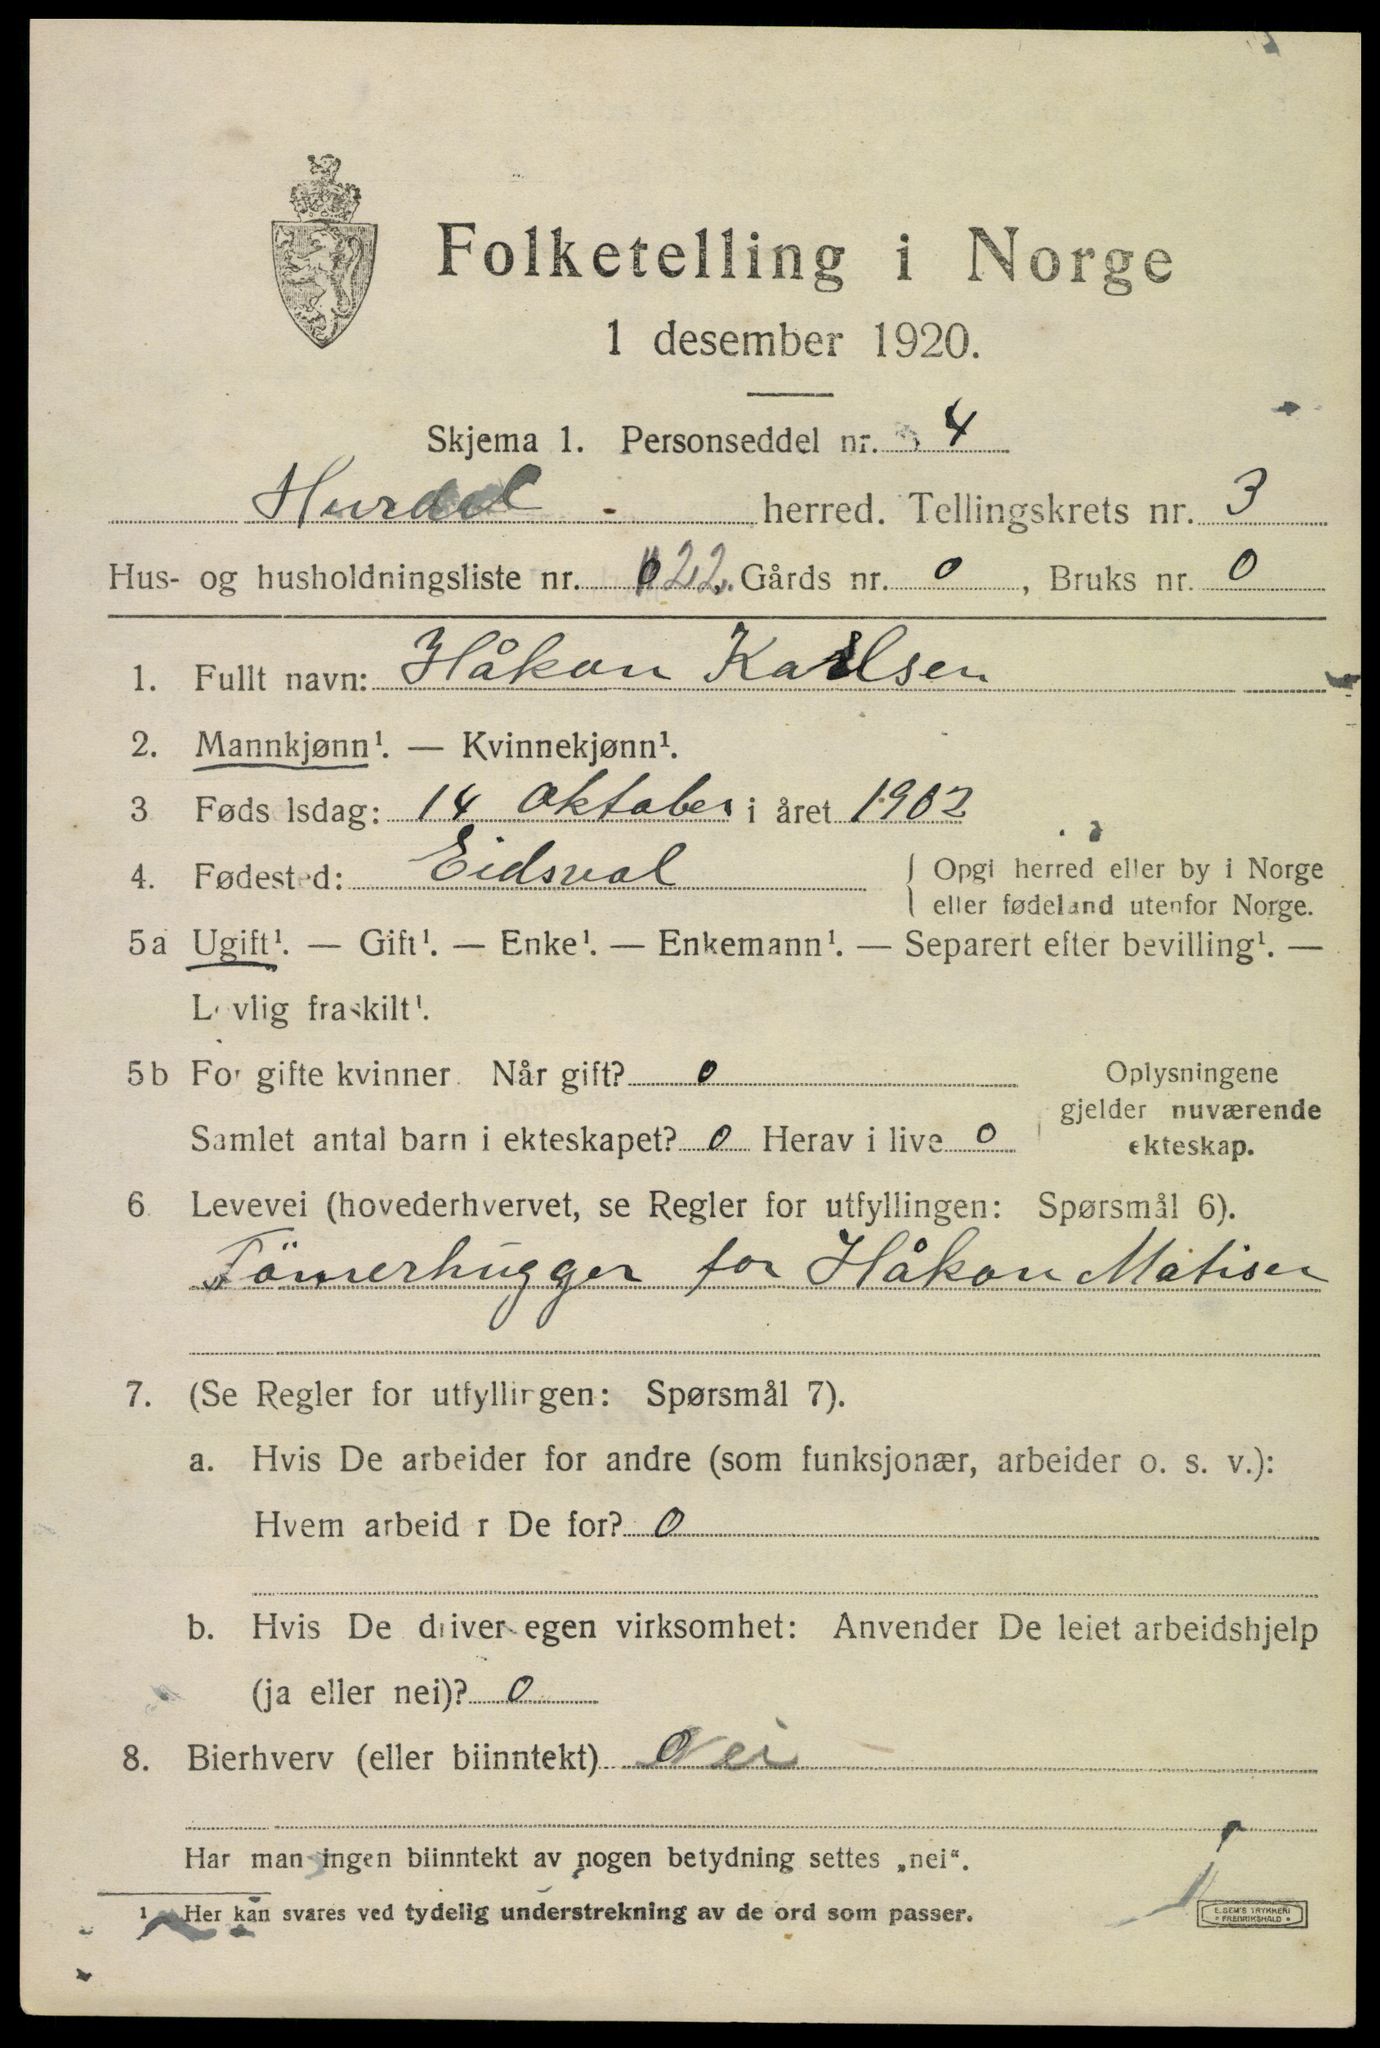 Folketelling i Norge
1 desember 1920.
Skjema 1. Personseddel nr. 4
Hurdal herred. Tellingskrets nr. 3
Hus- og husholdningsliste nr. 22. Gårds nr. 0, Bruks nr. 0
1. Fullt navn: Håkon Karlsen
2. Mannkjønn¹. — Kvinnekjønn¹.
3 Føds lsdag: 14 Oktober i året 1902
4. Fødested: Eidsval { Opgi herred eller by i Norge
eller fødeland utenfor Norge.
5a Ugift¹. — Gift¹. — Enke¹. — Enkemann¹. — Separert efter bevilling¹. —
Lovlig fraskilt¹.
5b For gifte kvinner. Når gift? 0 Oplysningene
gjelder nuværende
Samlet antal barn i ekteskapet? 0 Herav i live 0 ekteskap.
6 Levevei (hovederhvervet, se Regler for utfyllingen: Spørsmål 6).
Tömerhugger for Håkon Matisen
7. (Se Regler for utfyllingen: Spørsmål 7).
a. Hvis De arbeider for andre (som funksjonær, arbeider o. s. v.):
Hvem arbeid r De for? 0
b. Hvis De driver egen virksomhet: Anvender De leiet arbeidshjelp
(ja eller nei)? 0
8. Bierhverv (eller biinntekt) 0 Nei
Har man ingen biinntekt av nogen betydning settes „nei“.
¹ Her kan svares ved tydelig understrekning av de ord som passer.
E. SEM'S TRYKKERI
* FREDRIKSHALD *